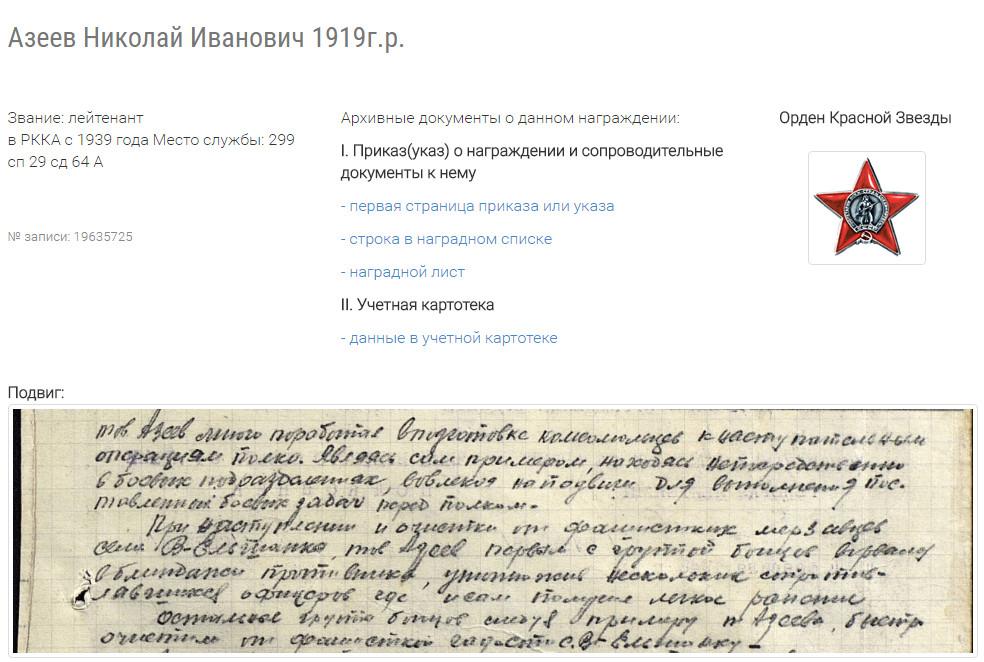 Азеев Николай Иванович 1919г.р.
Звание: лейтенант
в РККА с 1939 года Место службы: 299
сп 29 сд 64 А
№ записи: 19635725
Архивные документы о данном награждении:
I. Приказ(указ) о награждении и сопроводительные
документы к нему
- первая страница приказа или указа
- строка в наградном списке
- наградной лист
II. Учетная картотека
- данные в учетной картотеке
Орден Красной Звезды
Подвиг:
тов Азеев много поработал в подготовке комсомольцев к наступательным
операциям полка. Являясь сам примером, находясь непосредственно
в боевых подразделениях, вовлекая на подвиги для выполнения пос-
тавленных боевых задач перед полком.
При наступлении и очистки от фашистских мерзавцев
села В-Ельшанка, тов Азеев первым с группой бойцов ворвался
в блиндажи противника, уничтожив несколько сопротив-
лявшихся офицеров где и сам получил легкое ранение
Остальные группа бойцов следуя примеру т Азеева, быстро
очистили от фашистской гадости с. В-Ельшанку-